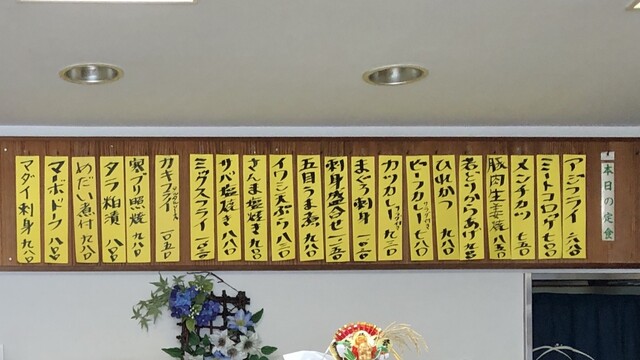 本日の定食
アジフライ 六八〇
ミートコロッケ 七〇〇
メンチカツ 七五〇
豚肉生姜焼 八五〇
若どりからあげ 九五〇
ひれかつ 九八〇
ビーフカレー 七八〇
カツカレー 九三〇
まぐろ刺身 一〇五〇
刺身盛合せ 一二五〇
五目うま煮 九八〇
イワシ天ぷら 八三〇
さんま塩焼き 九〇〇
サバ塩焼き 八八〇
ミックスフライ 一〇五〇
カキフライ 一〇五〇
寒ブリ照焼 九八〇
タラ粕漬 八八〇
めだい煮付 九八〇
マーボドーフ 八五〇
マダイ刺身 九八〇